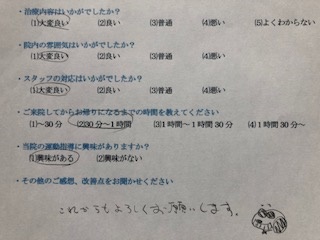 ・治療内容はいかがでしたか？
(1)大変良い (2)良い (3)普通 (4)悪い (5)よくわからない
・院内の雰囲気はいかがでしたか？
(1)大変良い (2)良い (3)普通 (4)悪い
・スタッフの対応はいかがでしたか？
(1)大変良い (2)良い (3)普通 (4)悪い
・ご来院してからお帰りになるまでの時間を教えてください
(1)～30分 (2)30分～1時間 (3)1時間～1時間30分 (4)1時間30分～
・当院の運動指導に興味がありますか？
(1)興味がある (2)興味がない
・その他のご感想、改善点をお聞かせください
これからもよろしくお願いします。